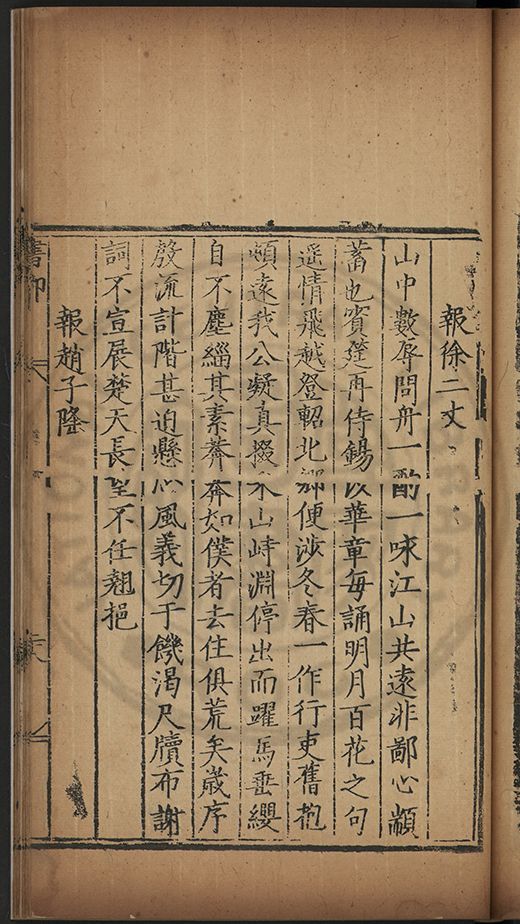 報徐二丈
山中數辱問舟一酌一咏江山共遠非鄙心顓
蓄也賓筵再侍錫以華章每誦明月百花之句
遥情飛越登軺北鄉便涉冬春一作行吏舊抱
頓遠我公凝真掇永山峙淵停出而躍馬垂纓
自不塵緇其素莽莽如僕者去住俱荒矣歲序
發流計階甚迫懸心風義切于饑渴尺牘布謝
詞不宣展楚天長望不任翹挹
報趙子隆